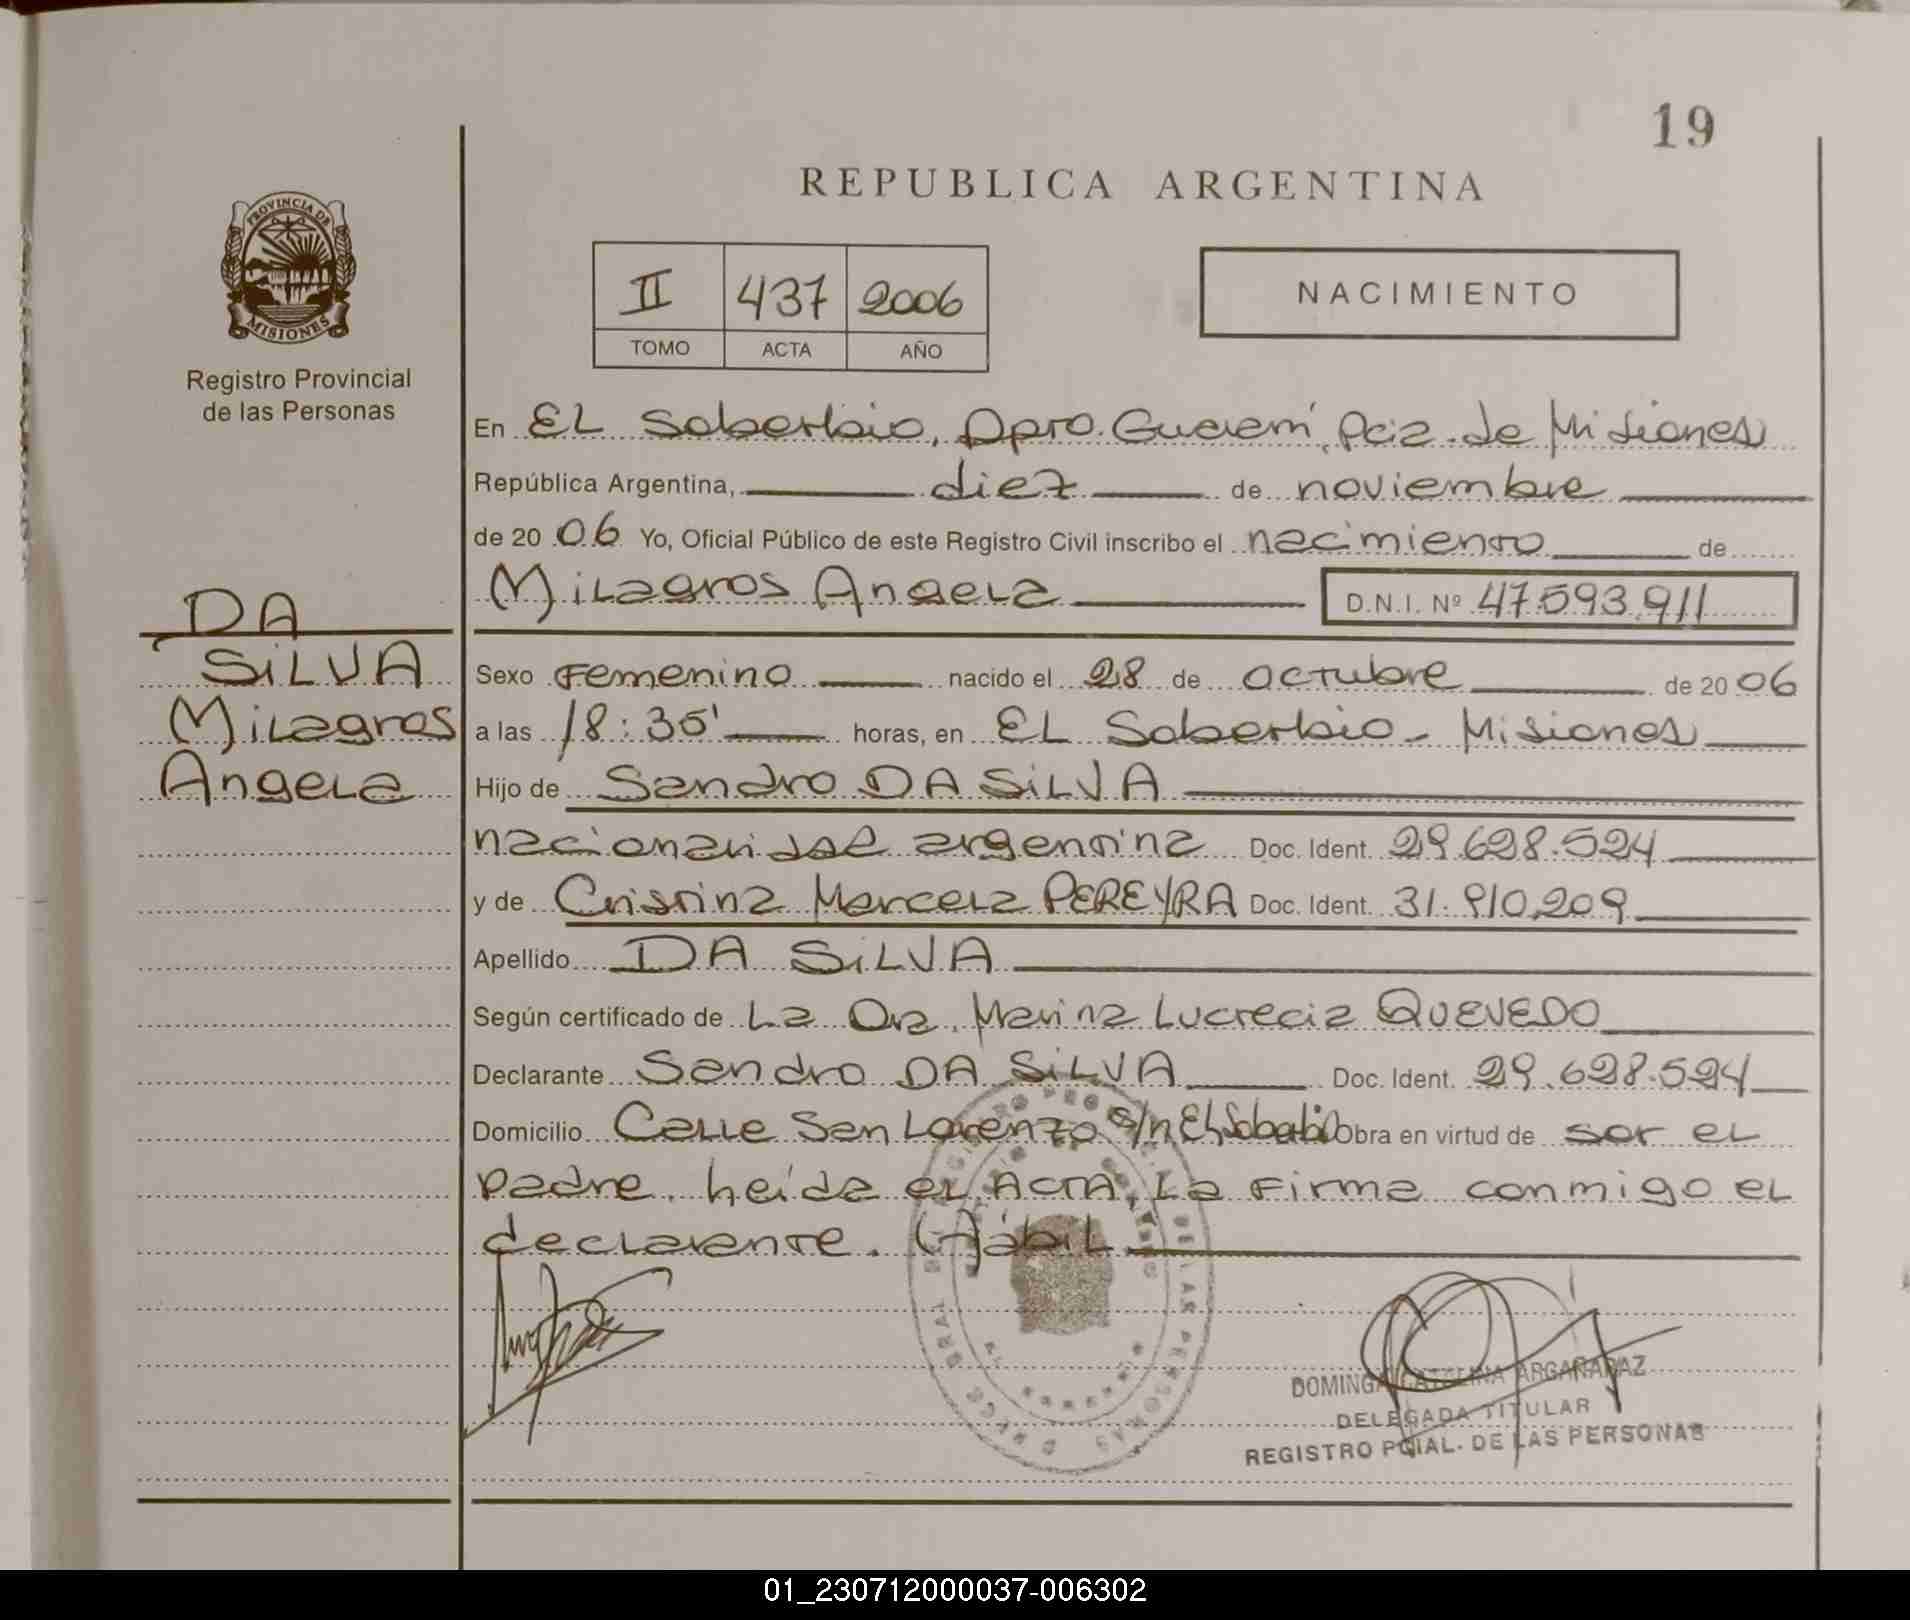 19
REPUBLICA ARGENTINA
PROVINCIA DE
MISIONES
Registro Provincial
de las Personas
II 437 2006
TOMO ACTA AÑO
NACIMIENTO
En EL Soberbio, Dpto. Guaraní, Pcia. de Misiones
República Argentina, diez de noviembre
de 20 06 Yo, Oficial Público de este Registro Civil inscribo el nacimiento de
Milagros Angela D.N.I. Nº 47.593.911
DA
SILVA
Milagros
Angela
Sexo Femenino nacido el 28 de octubre de 20 06
a las 18:35' horas, en EL Soberbio - Misiones
Hijo de Sandro DA SILVA
nacionalidad argentina Doc. Ident. 29.628.524
y de Cristina Marcela PEREYRA Doc. Ident. 31.910.209
Apellido DA SILVA
Según certificado de La Dra. Marina Lucrecia QUEVEDO
Declarante Sandro DA SILVA Doc. Ident. 29.628.524
Domicilio Calle San Lorenzo s/n, El Soberbio Obra en virtud de ser el
padre. Leída el ACTA, La firma conmigo el
declarante. (A) ábil
DOMINGA CATALINA ARGAÑARAZ
DELEGADA TITULAR
REGISTRO PCIAL. DE LAS PERSONAS
01_230712000037-006302